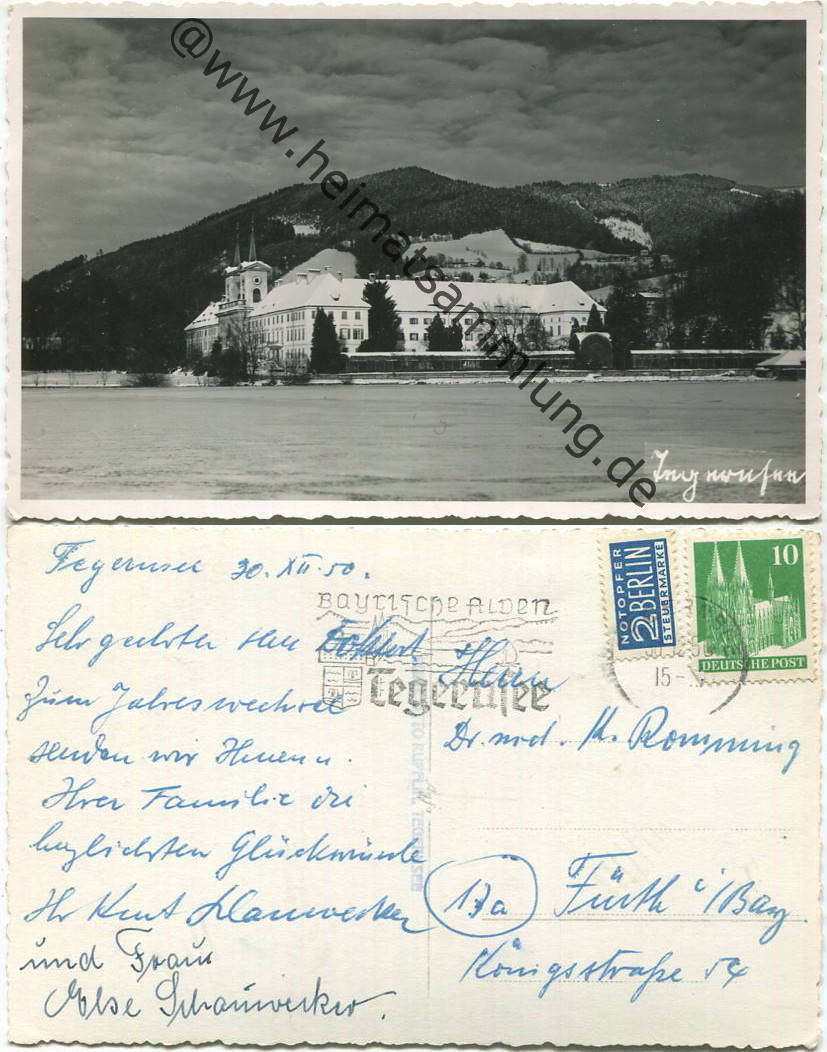 @www.heimatsammlung.de
Tegernsee
Tegernsee 30. XII. 50.
Sehr geehrter Herr Doktor!
Zum Jahreswechsel
senden wir Ihnen u.
Ihrer Familie die
herzlichsten Glückwünsche
Ihr Kurt Schauwecker
und Frau
Else Schauwecker.
Bayrische Alpen
Tegernsee
NOTOPFER
2 BERLIN
STEUERMARKE
10
DEUTSCHE POST
15-
Herrn
Dr. med. K. Romming
13a Fürth i/Bay.
Königsstraße 54
TEGERNSEE